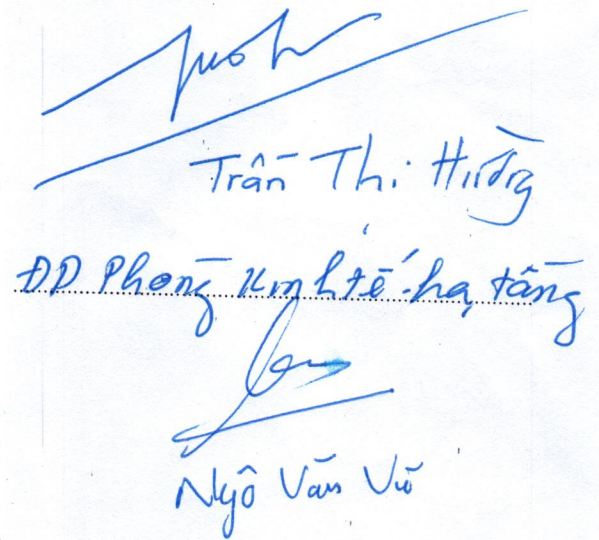 Trần Thị Hường
ĐD Phòng Kinh tế - hạ tầng
Ngô Văn Vũ